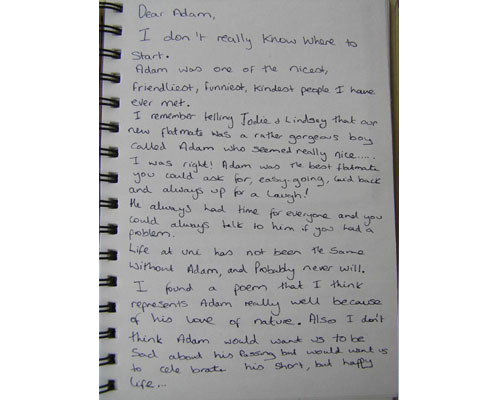 Dear Adam,
I don't really know where to
start.
Adam was one of the nicest,
friendliest, funniest, kindest people I have
ever met.
I remember telling Jodie & Lindsay that our
new flatmate was a rather gorgeous boy
called Adam who seemed really nice.....
I was right! Adam was the best flatmate
you could ask for, easy-going, laid back
and always up for a laugh!
He always had time for everyone and you
could always talk to him if you had a
problem.
Life at uni has not been the same
without Adam, and Probably never will.
I found a poem that I think
represents Adam really well because
of his love of nature. Also I don't
think Adam would want us to be
Sad about his Passing but would want us
to cele brate his short, but happy
life...